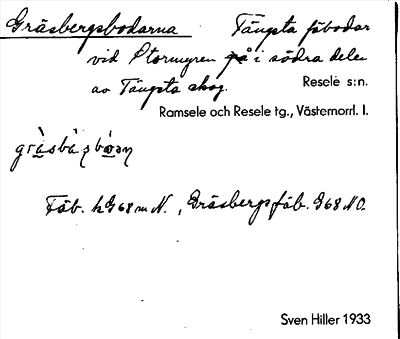 Gräsbergsbodarna Tängsta fäbodar
vid Stormyren i södra delen
av Tängsta skog. Resele s:n.
Ramsele och Resele tg., Västernorrl. l.
Fäb. h G68 m N., Gräsbergsfäb. G68 NO.
Sven Hiller 1933